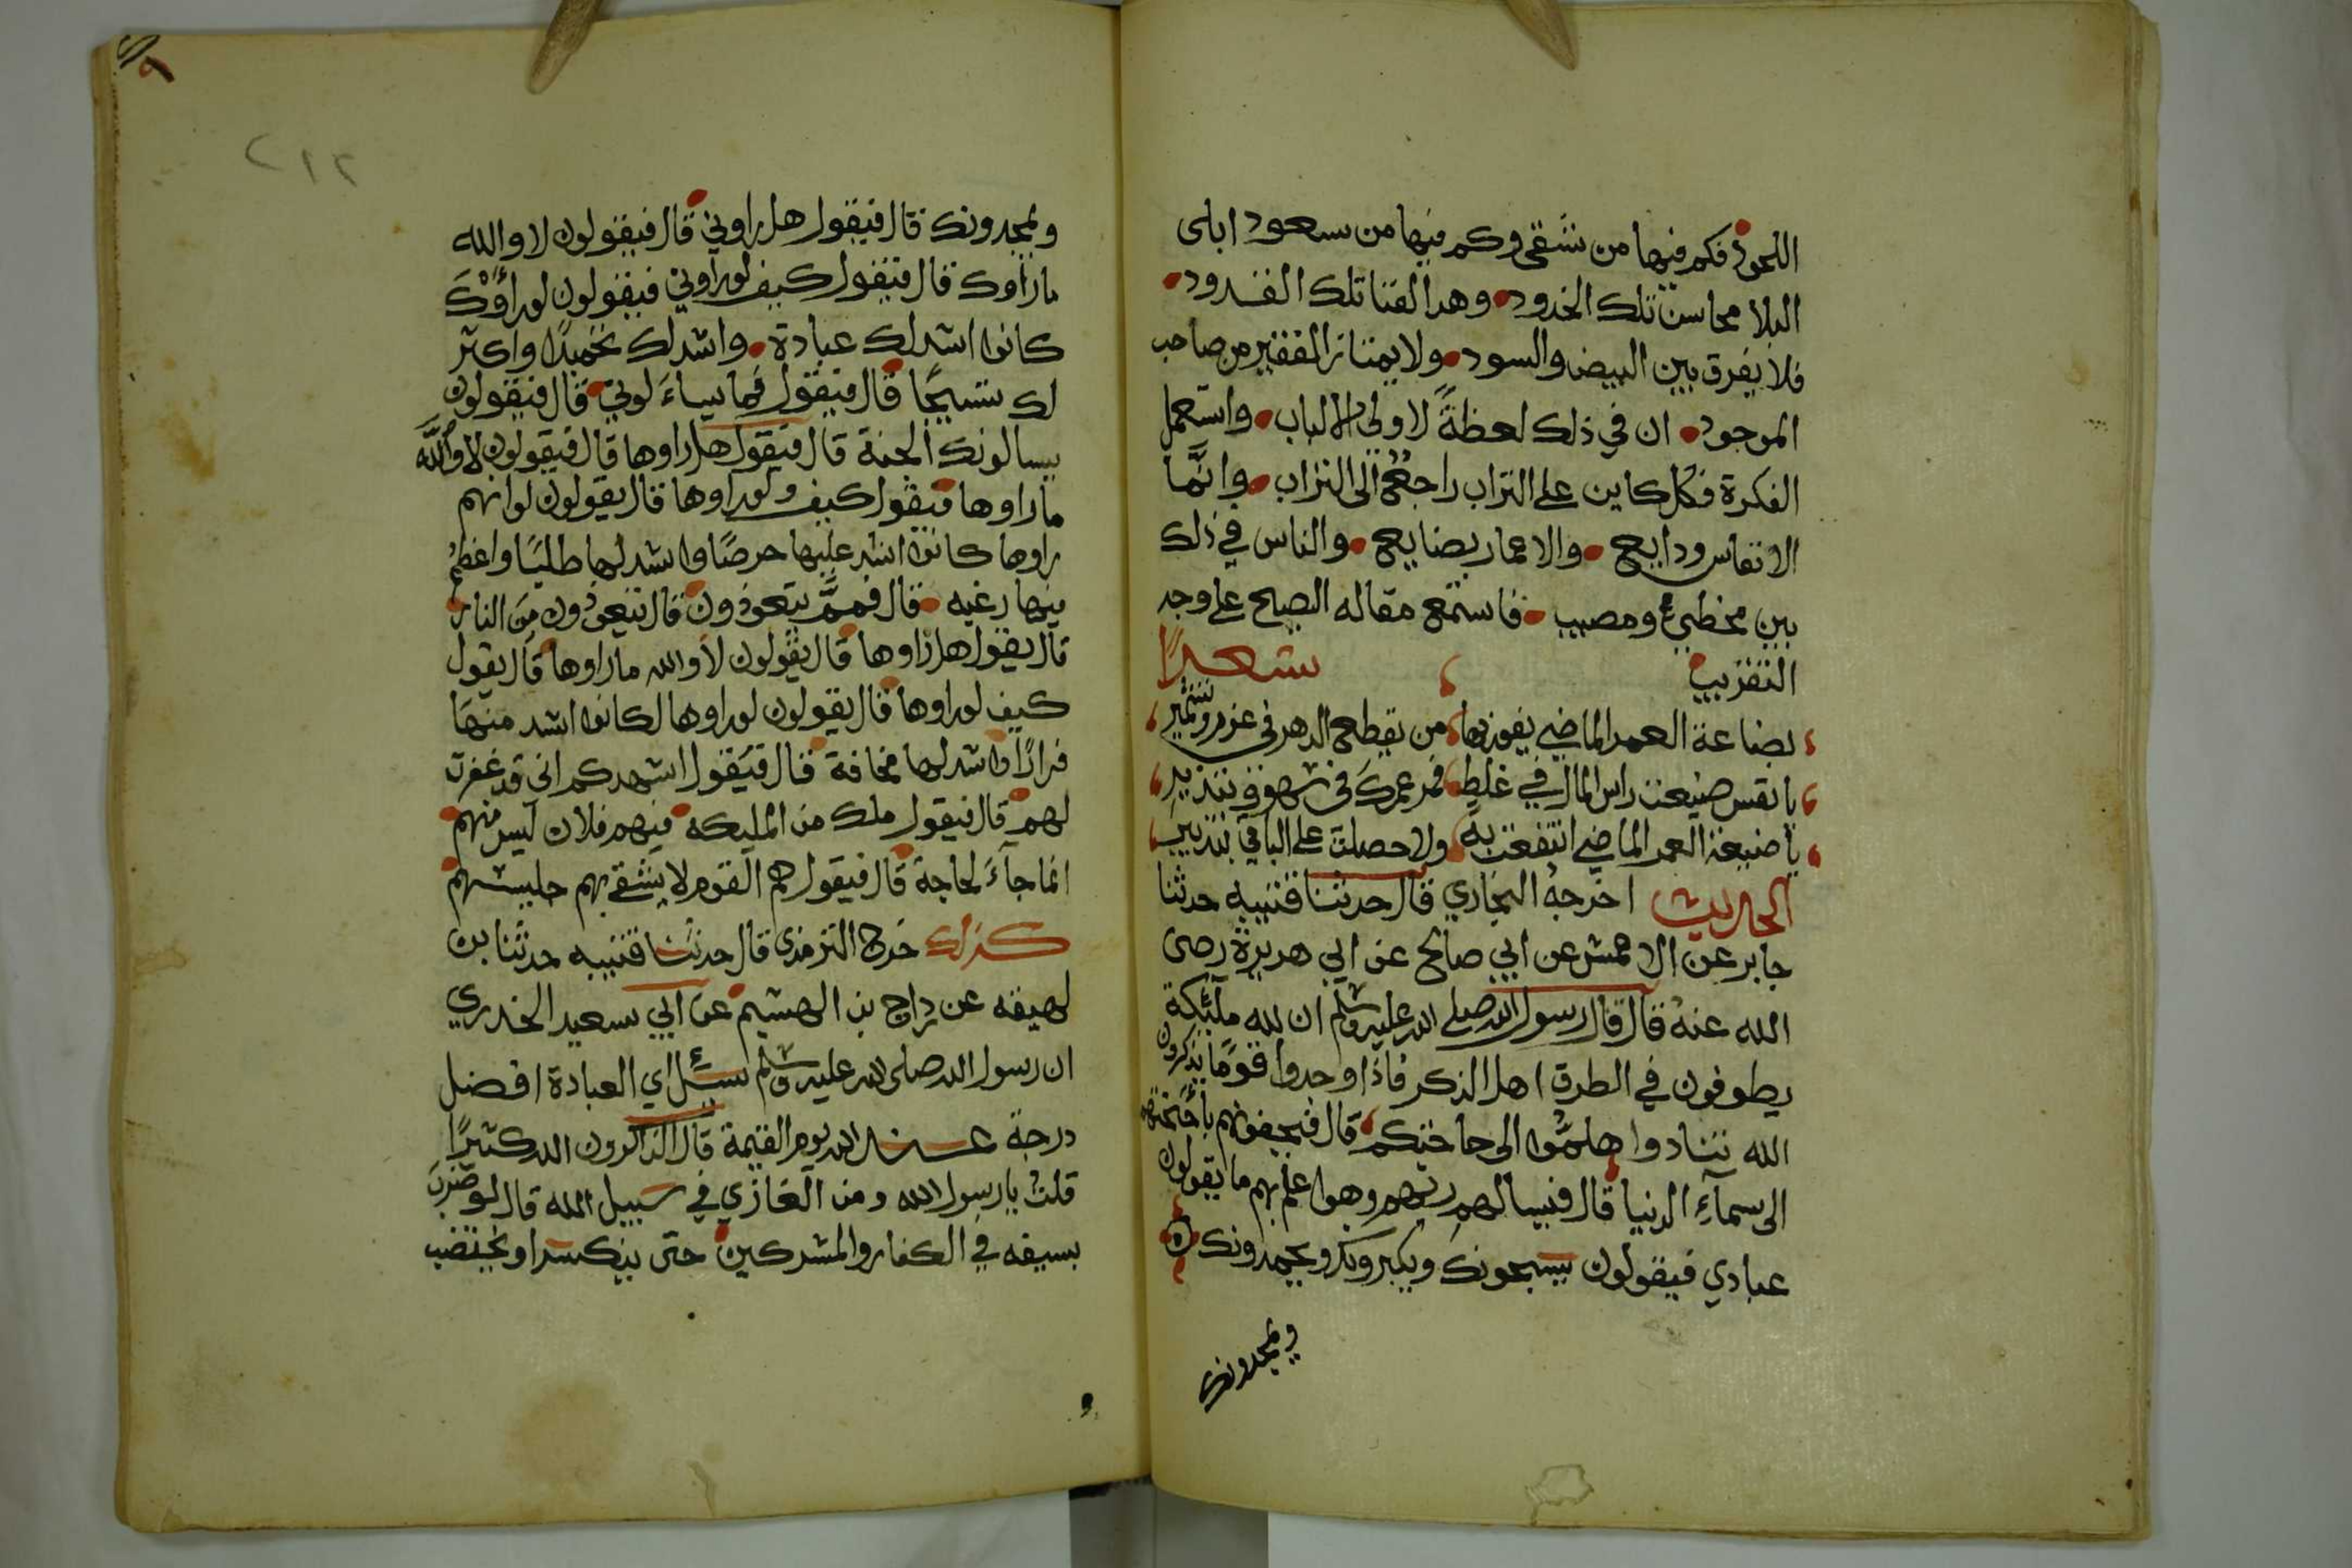 اللحود فكم فيها من شقى وكم فيها من سعود ابلى
البلا محاسن تلك الخدود وهد الفنا تلك القدود
فلا يفرق بين البيض والسود ولا يمتاز الفقير من صاحب
الموجود ان في ذلك لعظةً لاولى الالباب واستعمل
الفكرة فكل كاين على التراب راجع الى التراب وانما
الانفاس ودايع والاعمار بضايع والناس في ذلك
بين مخطيء ومصيب فاستمع مقاله النصيح على وجه
التقريب شعرًا
بضاعة العمر الماضي يفوز بها من يقطع الدهر في عزم وتشمير
يا نفس ضيعت راس المال في غلط فمر عمرك في سهو وتبذير
يا ضيعة العمر الماضي انتفعت به ولا حصلت على الباقي بتدبير
الحديث اخرجه البخاري قال حدثنا قتيبه حدثنا
جابر عن الاعمش عن ابي صالح عن ابي هريرة رضى
الله عنه قال قال رسول الله صلى الله عليه وسلم ان لله ملئكة
يطوفون في الطرق اهل الذكر فاذا وجدوا قومًا يذكرون
الله تنادوا هلموا الى حاجتكم قال فيحفونهم باجنحتهم
الى سمآء الدنيا قال فيسالهم ربهم وهو اعلم بهم ما يقولون
عبادي فيقولون يسبحونك ويكبرونك ويحمدونك
ويمجدونك
٢١٢
ويمجدونك قال فيقول هل راوني قال فيقولون لا والله
ما راوك قال فيقول كيف لو راوني فيقولون لو راؤك
كانوا اشد لك عبادة واشد لك تحميدًا واكثر
لك تسبيحًا قال فيقول فما يساءلوني قال فيقولون
يسالونك الجنة قال فيقول هل راوها قال فيقولون لا والله
ما راوها فيقول كيف ولو راوها قال يقولون لو انهم
راوها كانوا اشد عليها حرصًا واشد لها طلبًا واعظم
فيها رغبه قال فممَّ يتعوذون قال يتعوذون من النار
قال يقول هل راوها قال يقولون لا والله ما راوها قال يقول
كيف لو راوها قال يقولون لو راوها لكانوا اشد منها
فرارًا واشد لها مخافة قال فيقول اشهدكم انى قد غفرت
لهم قال فيقول ملك من المليكه فيهم فلان ليس منهم
انما جآء لحاجة قال فيقول هم القوم لا يشقى بهم جليسهم
كذلك خرج الترمذى قال حدثنا قتيبه حدثنا بن
لهيعه عن دراج بن الهشيم عن ابي سعيد الخدري
ان رسول الله صلى الله عليه وسلم سئل اي العبادة افضل
درجة عند الله يوم القيمة قال الذاكرون الله كثيرًا
قلت يا رسول الله ومن الغازي في سبيل الله قال لو ضرب
بسيفه في الكفار والمشركين حتى ينكسر او يختضب